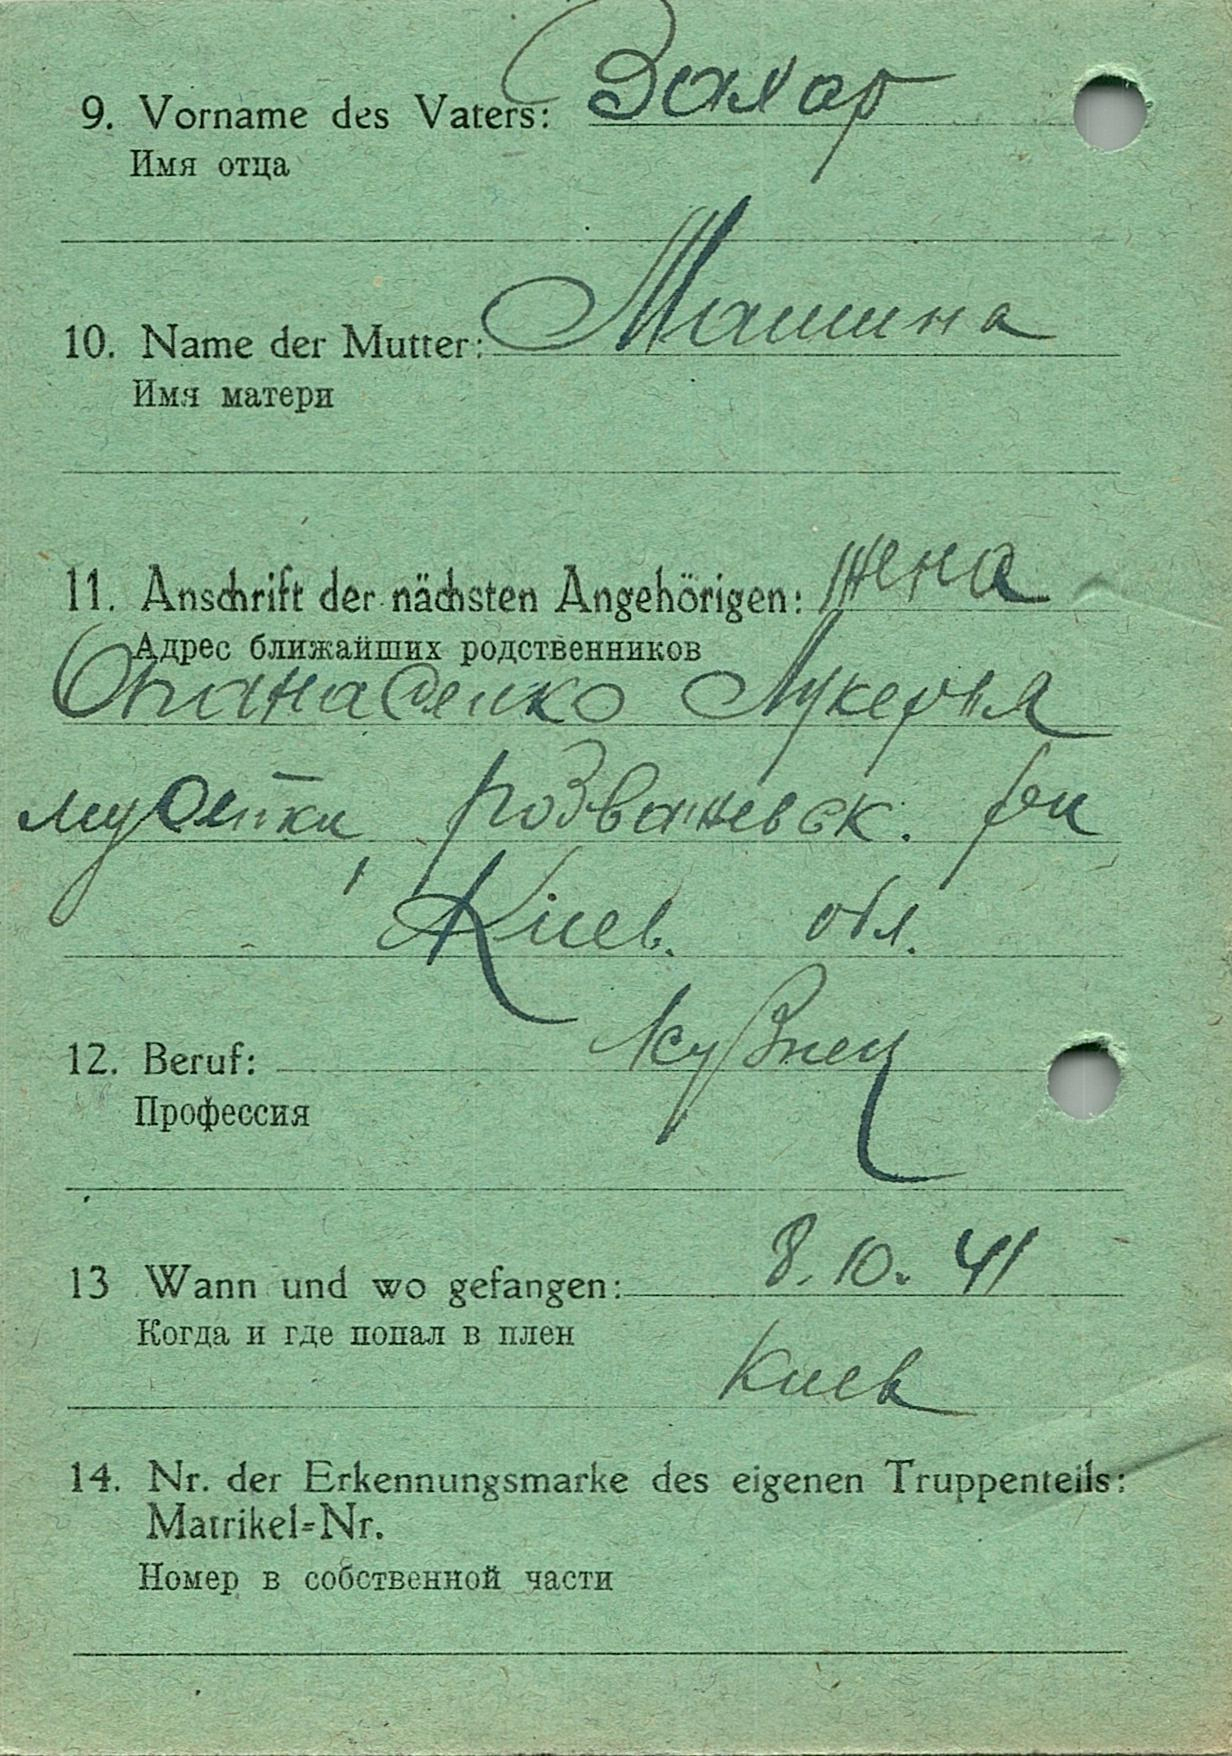 9. Vorname des Vaters: Захар
Имя отца
10. Name der Mutter: Машина
Имя матери
11. Anschrift der nächsten Angehörigen: жена
Адрес ближайших родственников
Опанасенко Лукерья
розваневск. рн
Киев. обл.
12. Beruf: Кузнец
Профессия
13 Wann und wo gefangen: 8. 10. 41
Когда и где попал в плен
Киев
14. Nr. der Erkennungsmarke des eigenen Truppenteils:
Matrikel-Nr.
Номер в собственной части